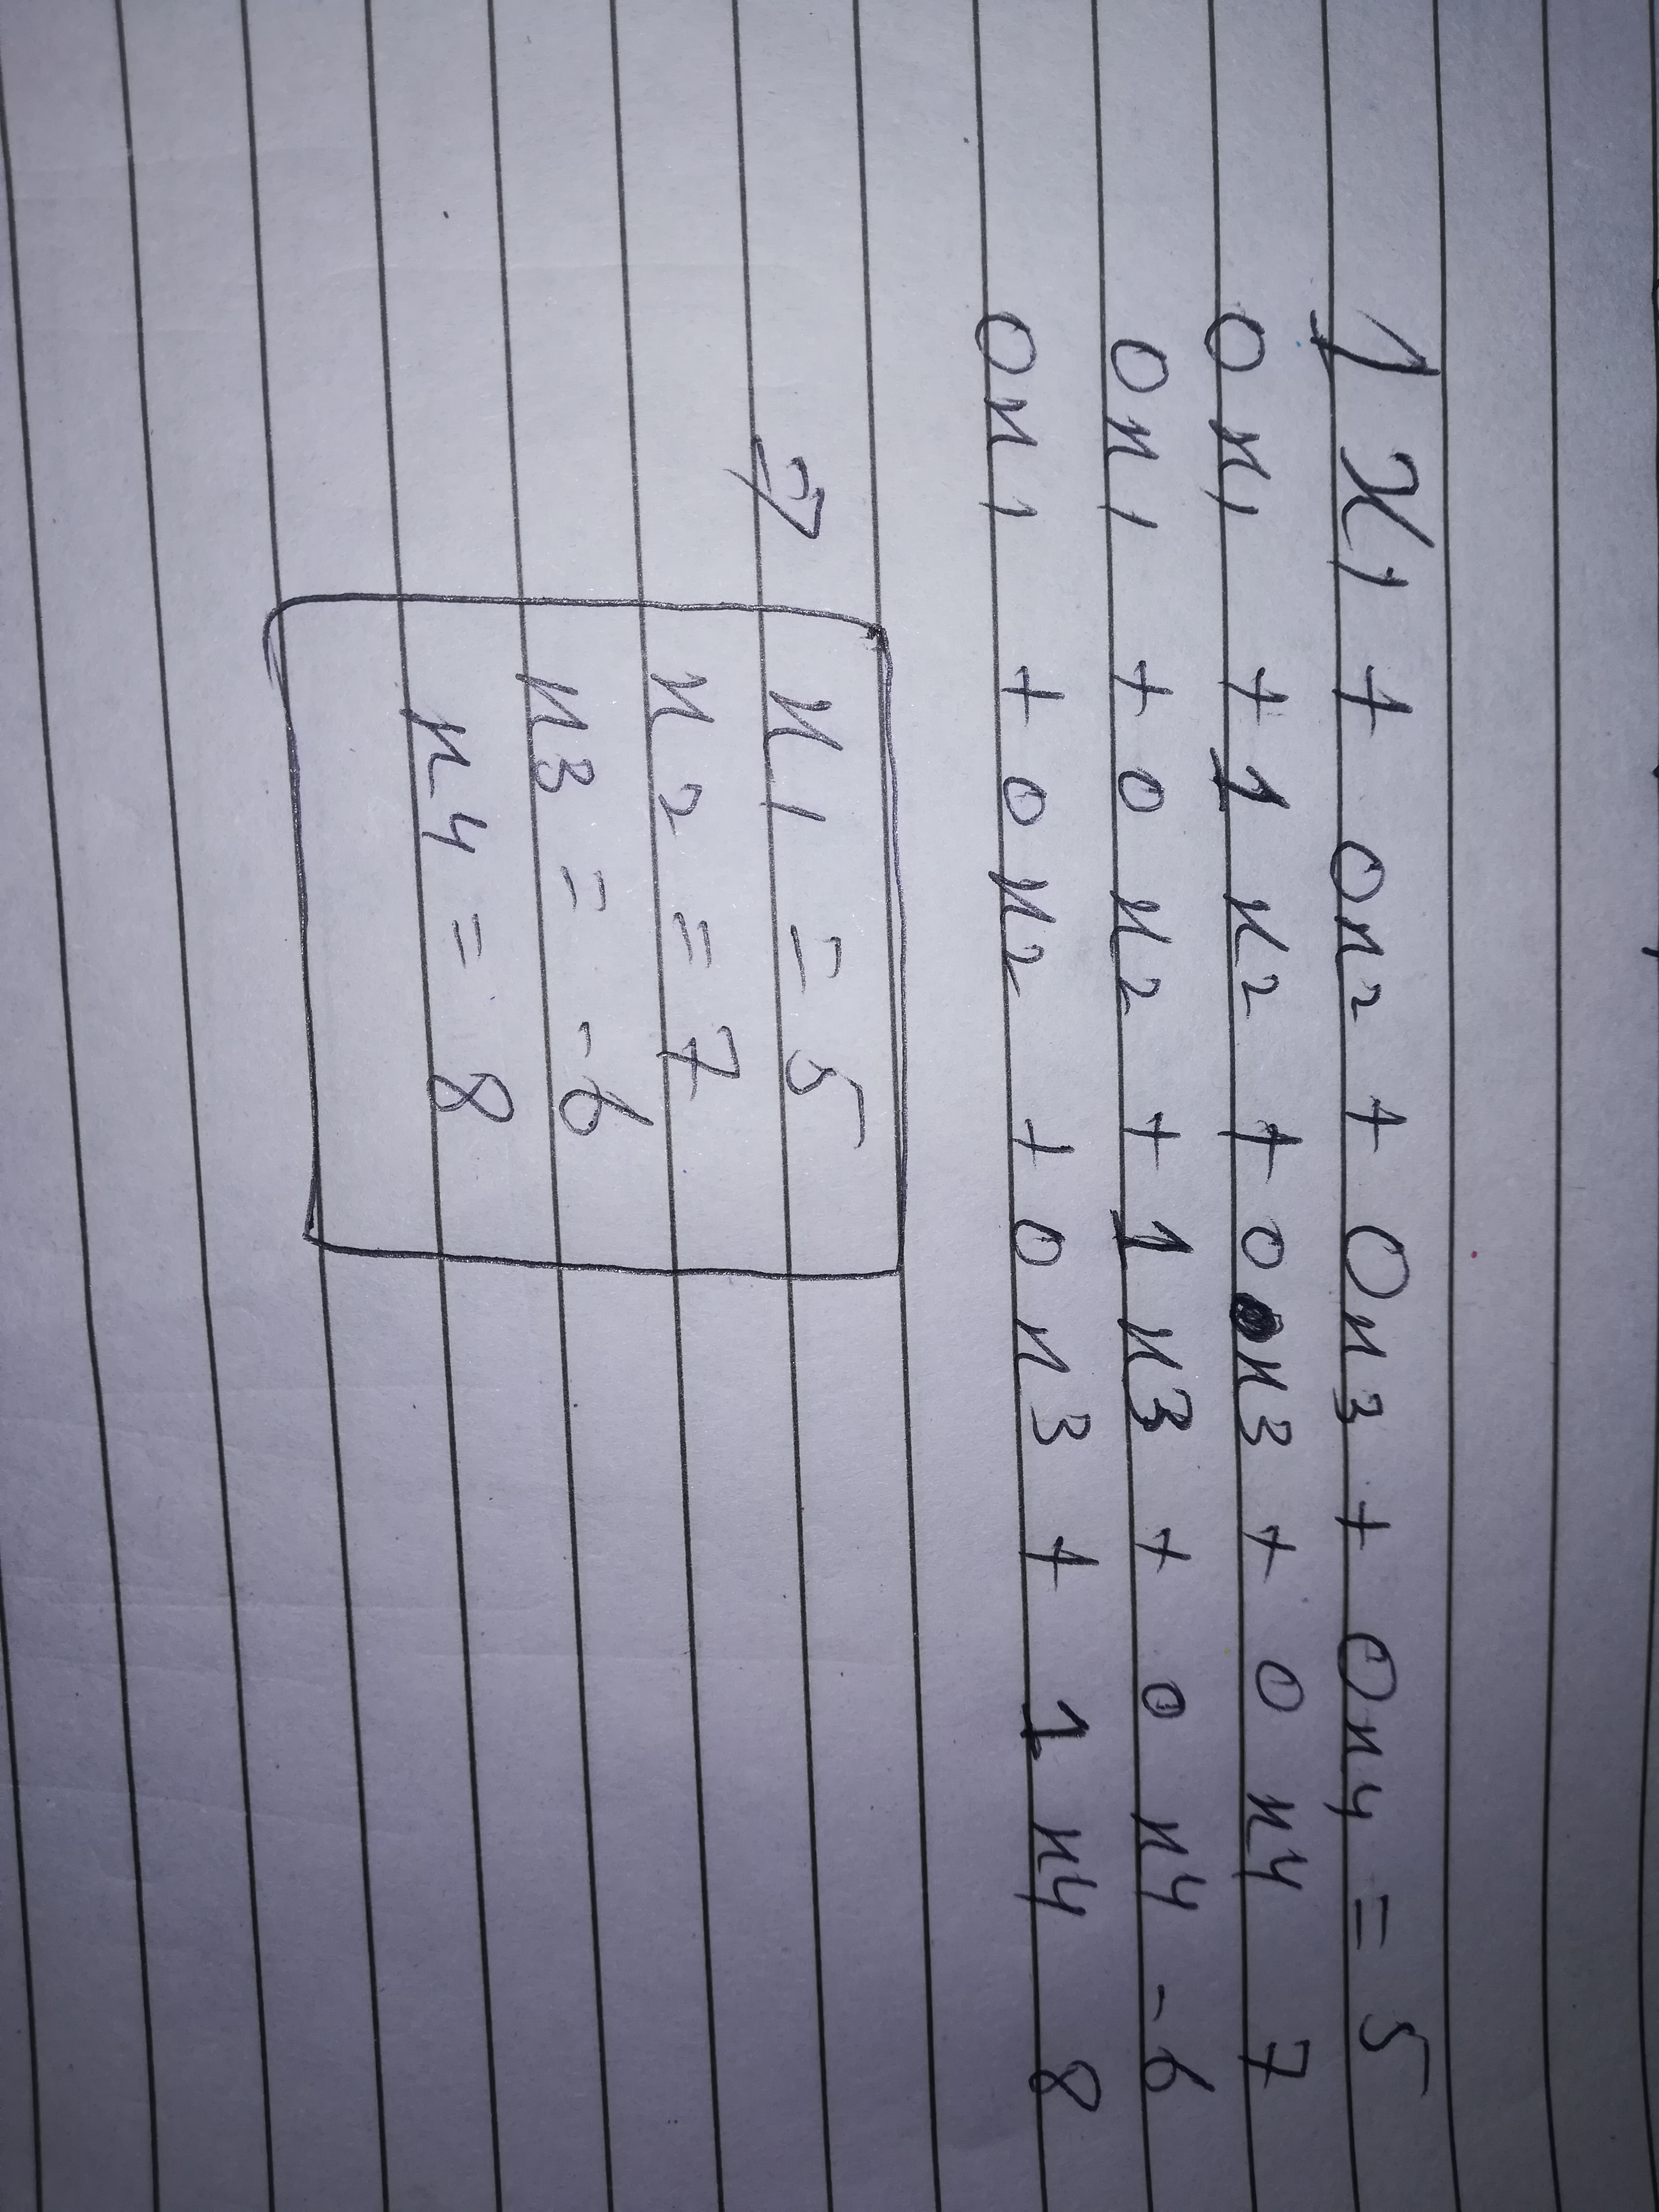 1 x1 + 0x2 + 0x3 + 0x4 = 5
0x1 + 1 x2 + 0 x3 + 0 x4 7
0x1 + 0 x2 + 1 x3 + 0 x4 -6
0x1 + 0 x2 + 0 x3 + 1 x4 8
⇒ x1 = 5
x2 = 7
x3 = -6
x4 = 8